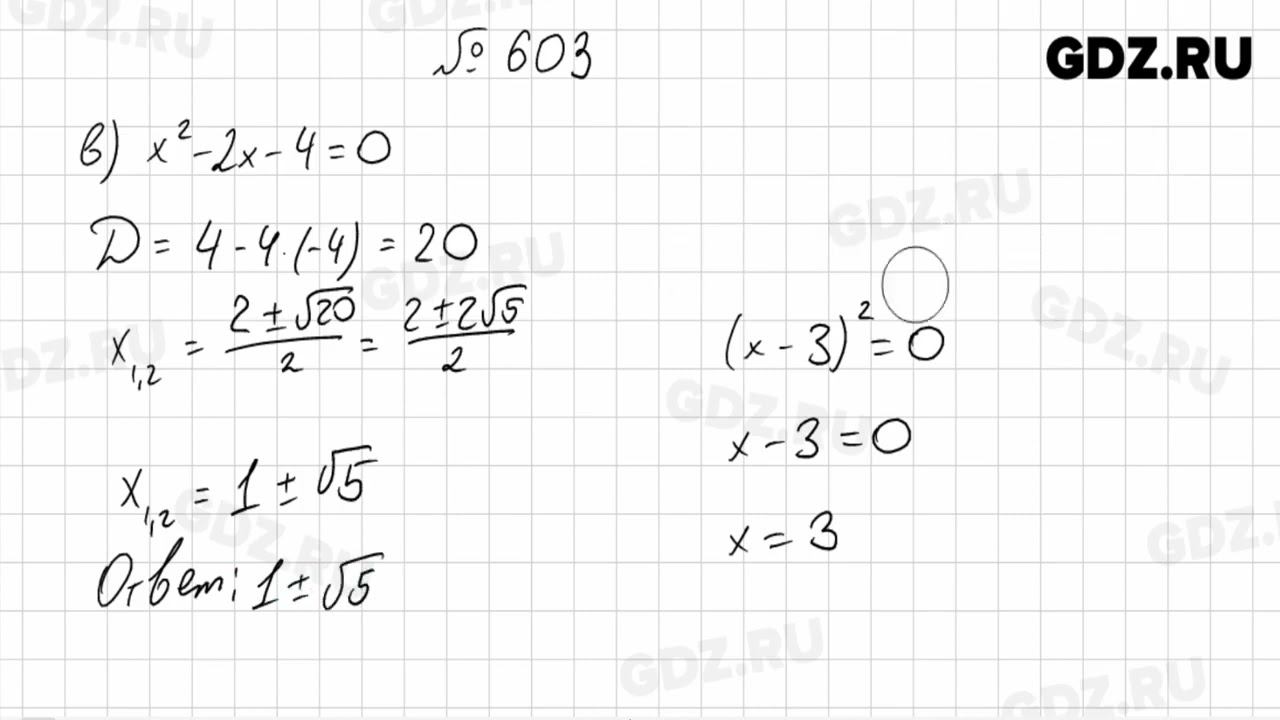 № 603
GDZ.RU
в) x² - 2x - 4 = 0
D = 4 - 4·(-4) = 20
x₁,₂ = (2 ± √20)/2 = (2 ± 2√5)/2
x₁,₂ = 1 ± √5
Ответ: 1 ± √5
(x - 3)² = 0
x - 3 = 0
x = 3
GDZ.RU
GDZ.RU
GDZ.RU
GDZ.RU
GDZ.RU
GDZ.RU
GDZ.RU
GDZ.RU
GDZ.RU
GDZ.RU
GDZ.RU